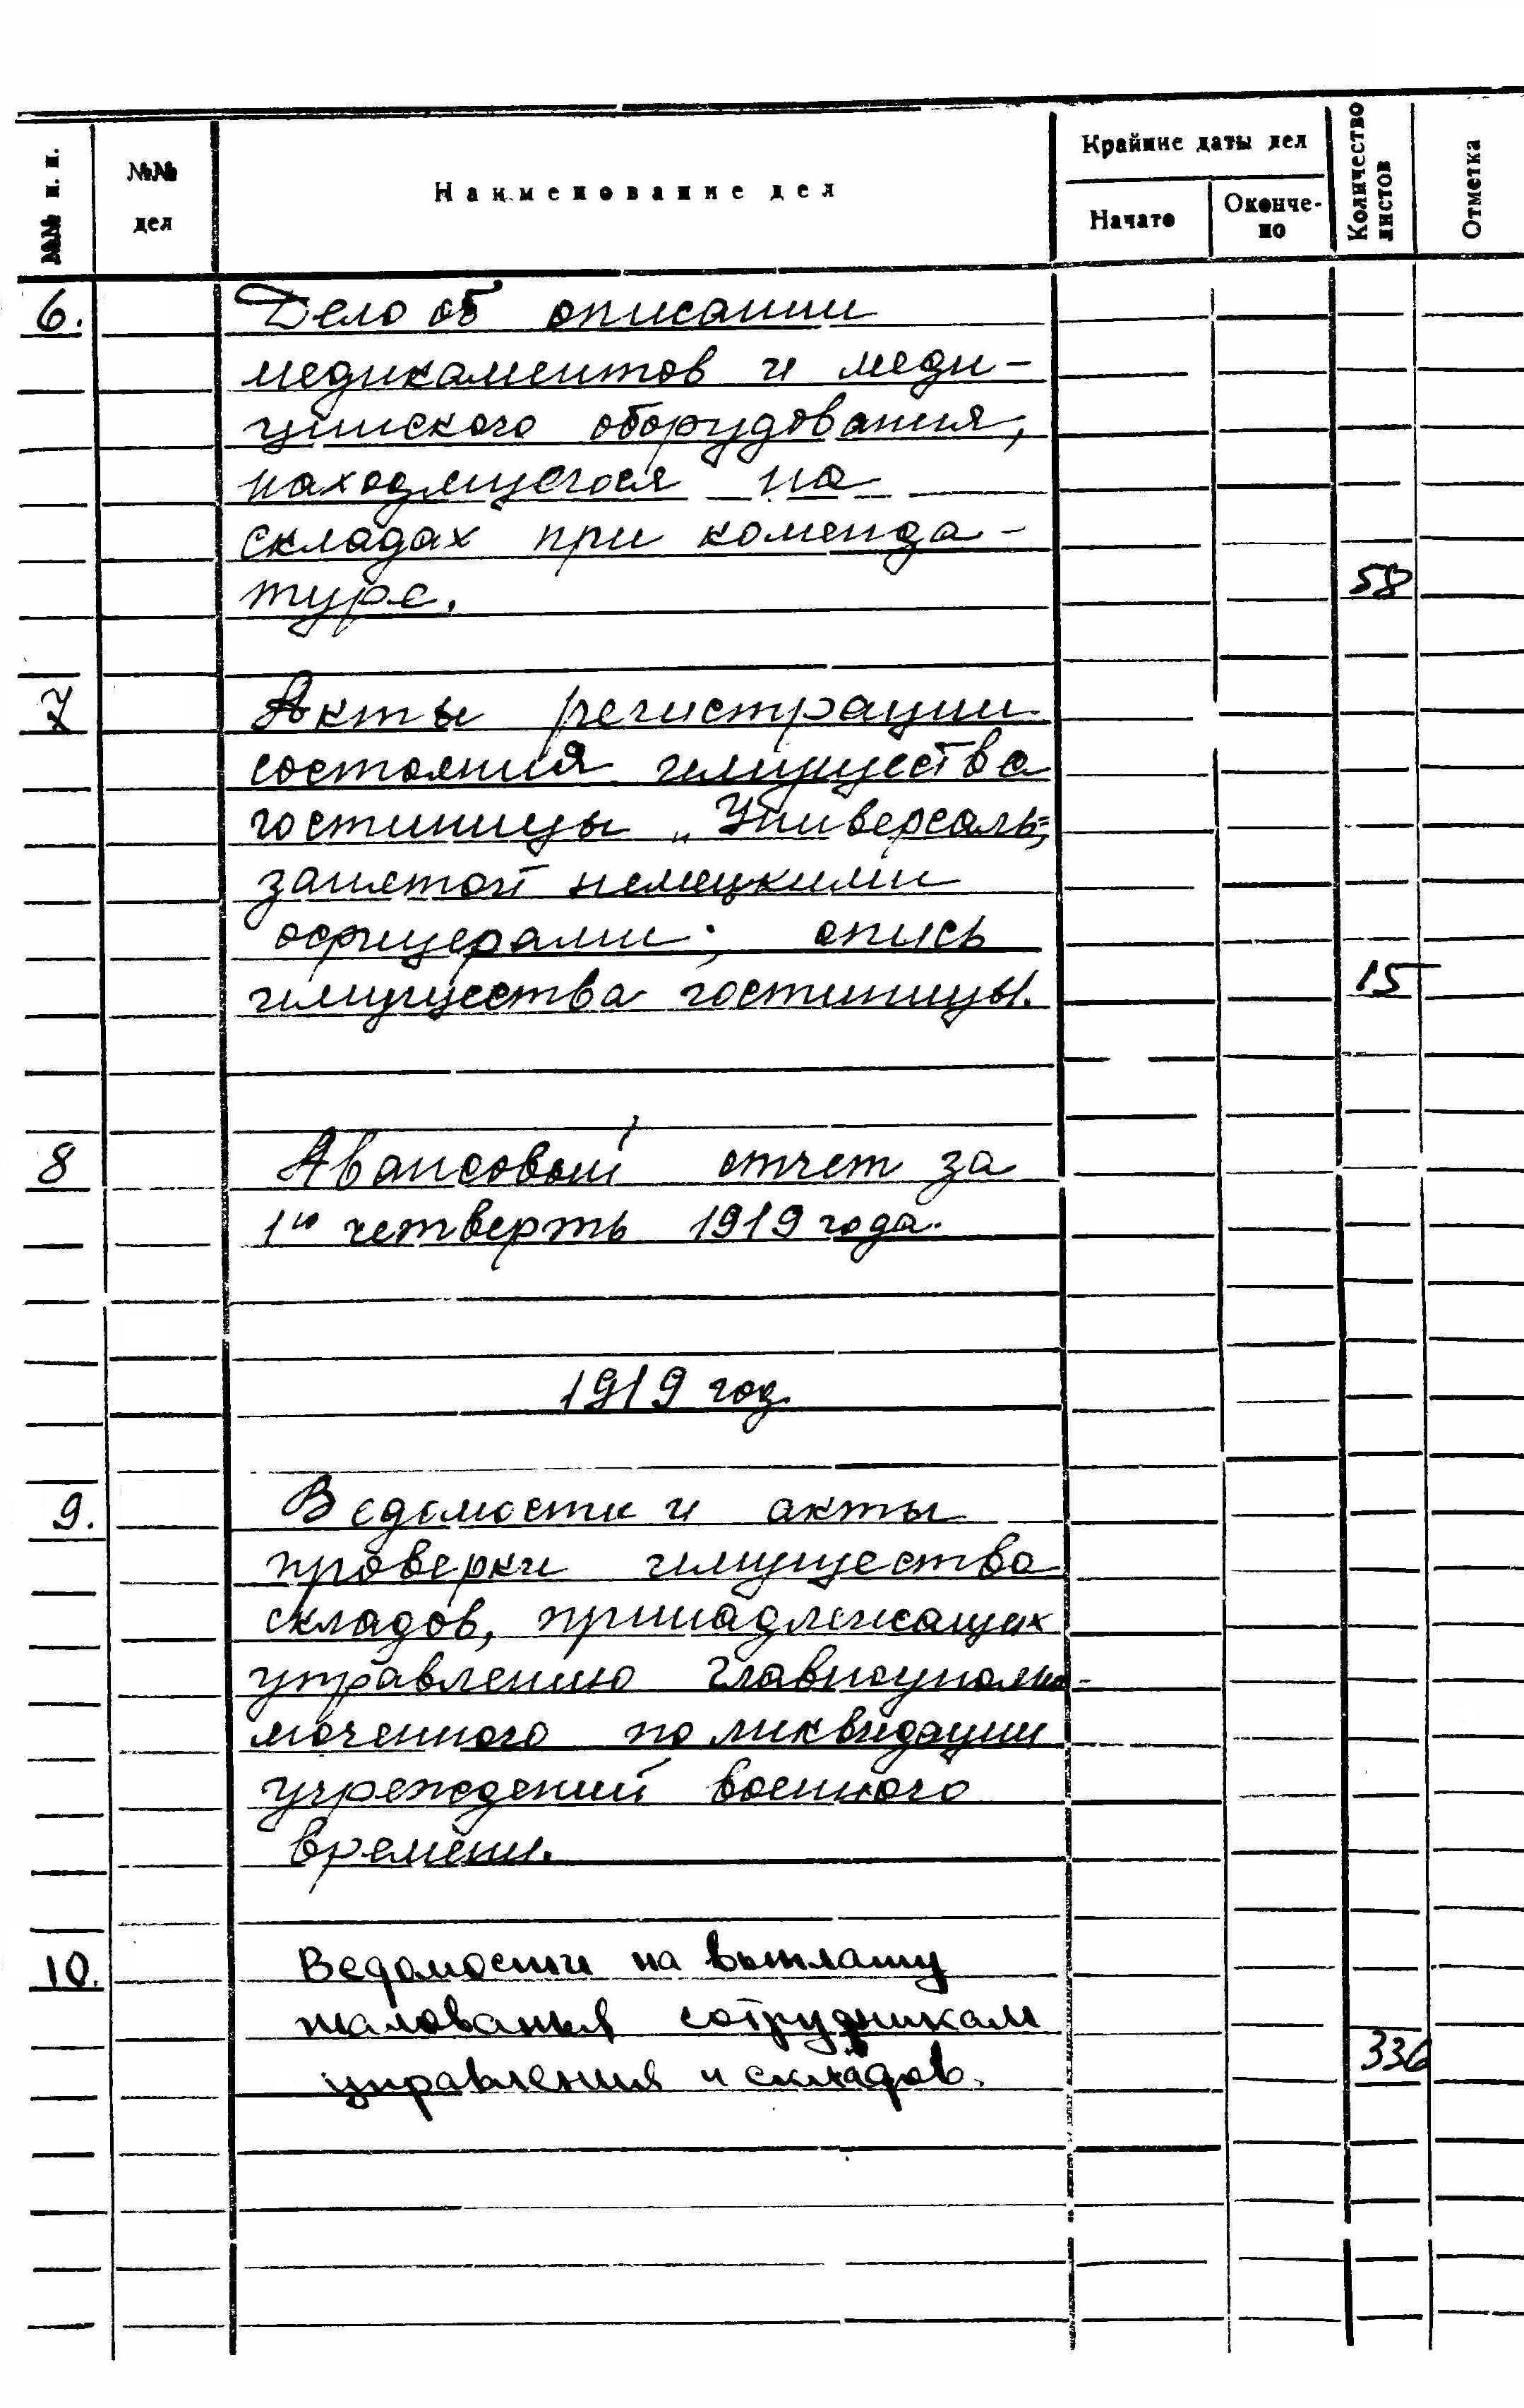 №№ п. п.
№№ дел
Наименование дел
Крайние даты дел
Начато
Окончено
Количество листов
Отметка
6. Дело об описании
медикаментов и меди-
цинского оборудования,
находящегося на
складах при коменда-
туре. 58
7 Акты регистрации
состояния имущества
гостиницы „Универсаль",
занятой немецкими
офицерами; опись
имущества гостиницы. 15
8 Авансовый отчет за
1ю четверть 1919 года.
1919 год
9. Ведомости и акты
проверки имущества
складов, принадлежащих
управлению главноуполно-
моченного по ликвидации
учреждений военного
времени.
10. Ведомости на выплату
жалованья сотрудникам
управления и складов. 336